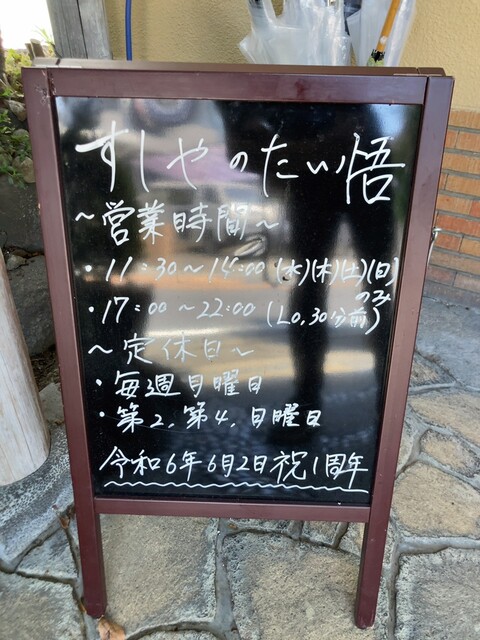 すしやのたい悟
～営業時間～
・11:30～14:00 (水)(木)(土)(日)
のみ
・17:00～22:00 (Lo,30分前)
～定休日～
・毎週月曜日
・第2,第4,日曜日
令和6年6月2日祝1周年